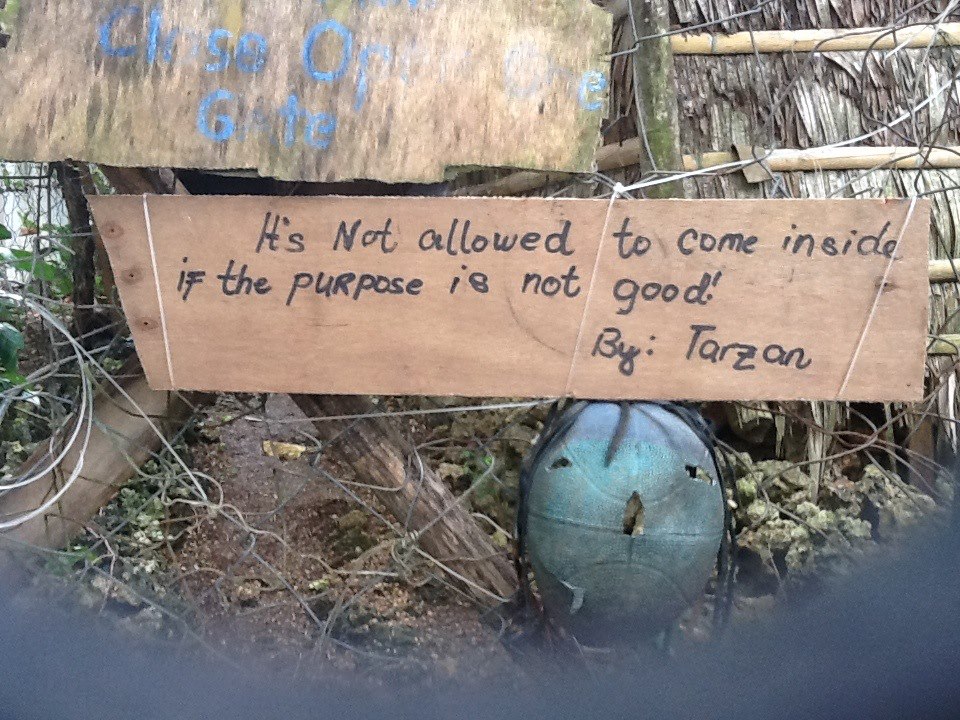 Close Open the
Gate
It's Not allowed to come inside
if the purpose is not good!
By: Tarzan